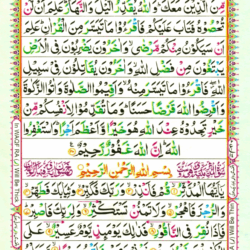 مِّنَ الَّذِيْنَ مَعَكَ ؕ وَاللّٰهُ يُقَدِّرُ الَّيْلَ وَالنَّهَارَ ؕ عَلِمَ اَنْ لَّنْ
تُحْصُوْهُ فَتَابَ عَلَيْكُمْ فَاقْرَءُوْا مَا تَيَسَّرَ مِنَ الْقُرْاٰنِ ؕ عَلِمَ
اَنْ سَيَكُوْنُ مِنْكُمْ مَّرْضٰى ۙ وَاٰخَرُوْنَ يَضْرِبُوْنَ فِى الْاَرْضِ
يَبْتَغُوْنَ مِنْ فَضْلِ اللّٰهِ ۙ وَاٰخَرُوْنَ يُقَاتِلُوْنَ فِىْ سَبِيْلِ
اللّٰهِ ۖ فَاقْرَءُوْا مَا تَيَسَّرَ مِنْهُ ۙ وَاَقِيْمُوا الصَّلٰوةَ وَاٰتُوا الزَّكٰوةَ
وَاَقْرِضُوا اللّٰهَ قَرْضًا حَسَنًا ؕ وَمَا تُقَدِّمُوْا لِاَنْفُسِكُمْ مِّنْ
خَيْرٍ تَجِدُوْهُ عِنْدَ اللّٰهِ هُوَ خَيْرًا وَّاَعْظَمَ اَجْرًا ؕ وَاسْتَغْفِرُوا
اللّٰهَ ؕ اِنَّ اللّٰهَ غَفُوْرٌ رَّحِيْمٌ
بِسْمِ اللّٰهِ الرَّحْمٰنِ الرَّحِيْمِ
يٰۤاَيُّهَا الْمُدَّثِّرُ ۙ قُمْ فَاَنْذِرْ ۙ وَرَبَّكَ فَكَبِّرْ ۙ وَثِيَابَكَ فَطَهِّرْ
وَالرُّجْزَ فَاهْجُرْ ۙ وَلَا تَمْنُنْ تَسْتَكْثِرُ ۙ وَلِرَبِّكَ فَاصْبِرْ
فَاِذَا نُقِرَ فِى النَّاقُوْرِ ۙ فَذٰلِكَ يَوْمَئِذٍ يَّوْمٌ عَسِيْرٌ ۙ عَلَى